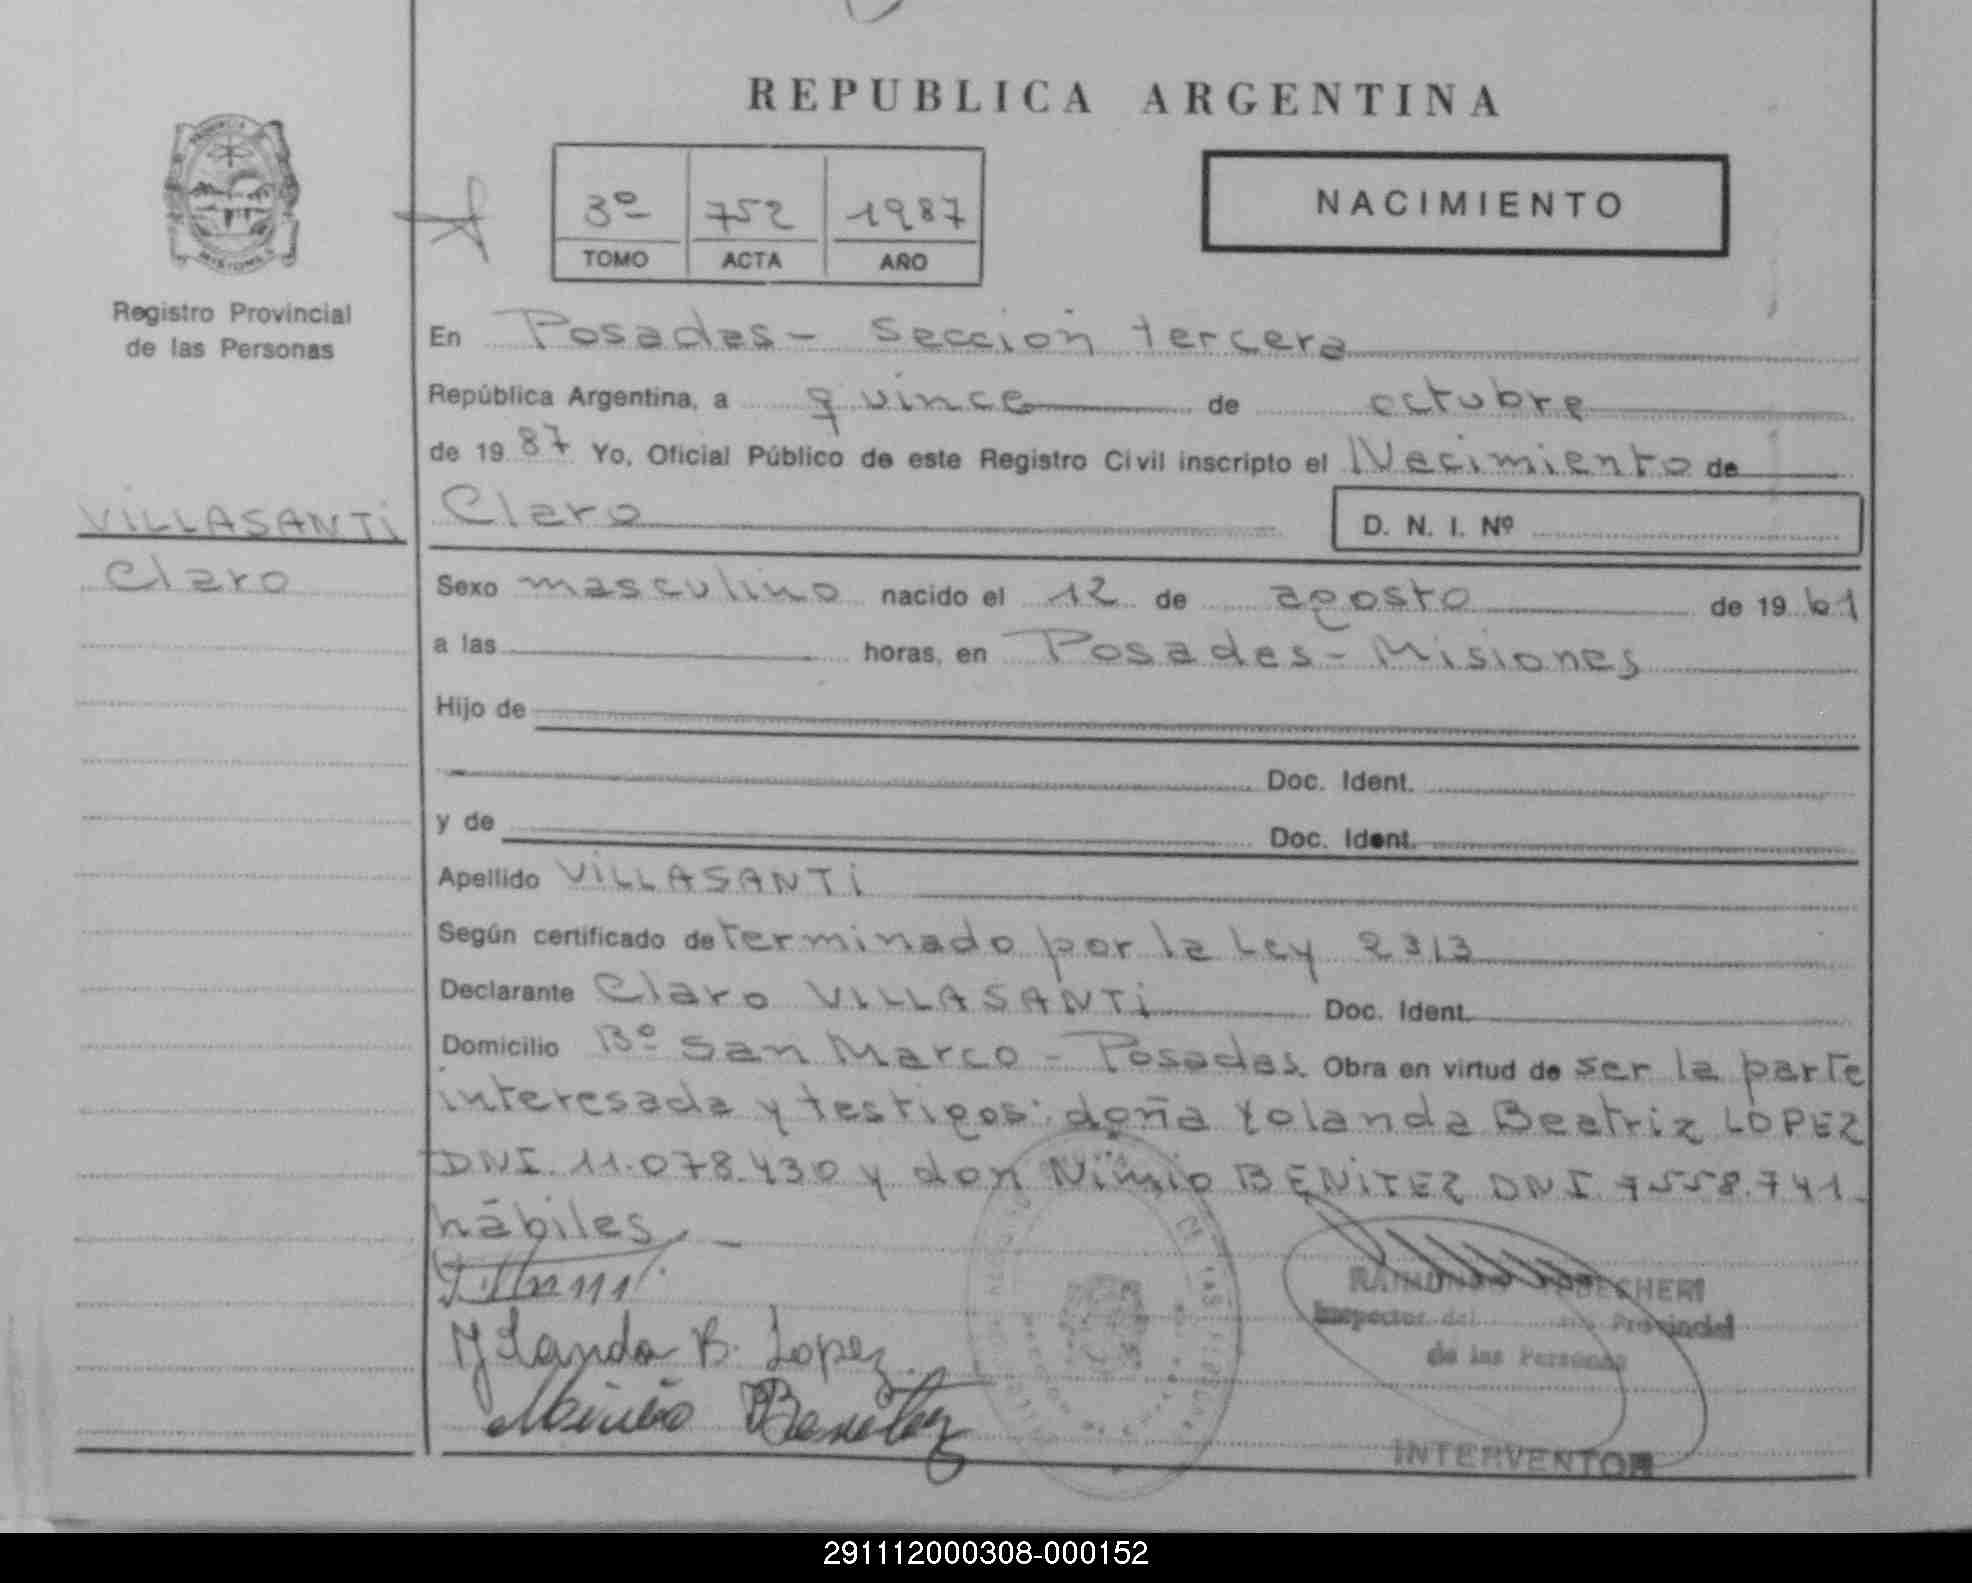 REPUBLICA ARGENTINA
PROVINCIA
MISIONES
Registro Provincial
de las Personas
3º 752 1987
TOMO ACTA AÑO
NACIMIENTO
En Posadas - Sección tercera
República Argentina, a quince de octubre
de 1987 Yo, Oficial Público de este Registro Civil inscripto el Nacimiento de
VILLASANTI Claro D. N. I. Nº
Claro
Sexo masculino nacido el 12 de agosto de 1961
a las horas, en Posadas - Misiones
Hijo de
Doc. Ident.
y de Doc. Ident.
Apellido VILLASANTI
Según certificado determinado por la Ley 2313
Declarante Claro VILLASANTI Doc. Ident.
Domicilio Bº San Marco - Posadas. Obra en virtud de ser la parte
interesada y testigos: doña Yolanda Beatriz LOPEZ
DNI. 11.078.430 y don Ninio BENITEZ DNI 7558.741.
hábiles. -
Yolanda B. Lopez
Benitez
RAIMUNDO
Inspector del Provincial
de las Personas
INTERVENTOR
291112000308-000152